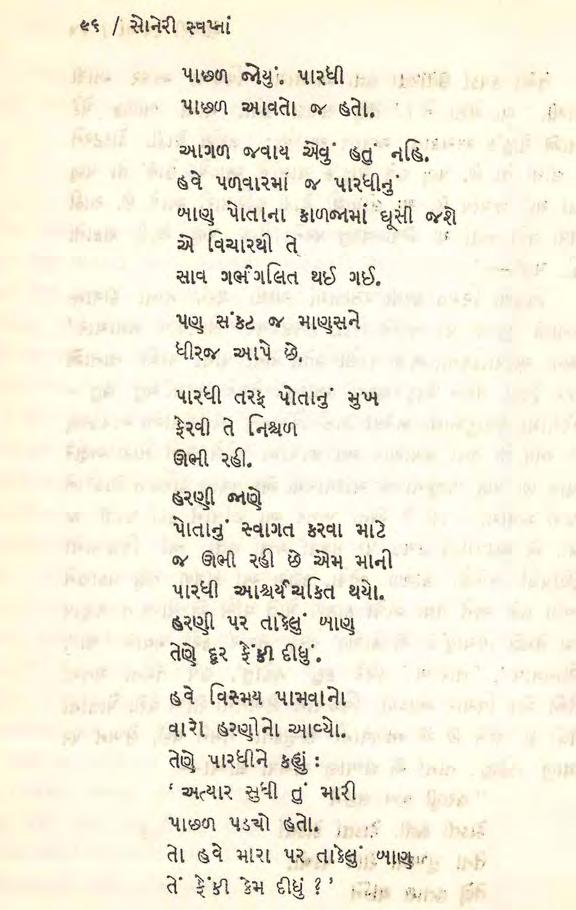 ૯૬ / સોનેરી સ્વપ્નાં
પાછળ જોયું. પારધી
પાછળ આવતો જ હતો.
આગળ જવાય એવું હતું નહિ.
હવે પળવારમાં જ પારધીનું
બાણ પોતાના કાળજામાં ઘૂસી જશે
એ વિચારથી તે
સાવ ગર્ભગલિત થઈ ગઈ.
પણ સંકટ જ માણસને
ધીરજ આપે છે.
પારધી તરફ પોતાનું મુખ
ફેરવી તે નિશ્ચળ
ઊભી રહી.
હરણી જાણે
પોતાનું સ્વાગત કરવા માટે
જ ઊભી રહી છે એમ માની
પારધી આશ્ચર્યચકિત થયો.
હરણી પર તાકેલું બાણ
તેણે દૂર ફેંકી દીધું.
હવે વિસ્મય પામવાનો
વારો હરણીનો આવ્યો.
તેણે પારધીને કહ્યું :
‘ અત્યાર સુધી તું મારી
પાછળ પડચો હતો.
તો હવે મારા પર તાકેલું બાણ
તેં ફેંકી કેમ દીધું ? ’